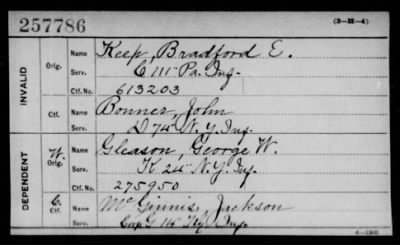 257786 (3-H-4)
INVALID
Orig. Name Keep, Bradford E.
Serv. C 111 Pa. Inf.
Ctf. No. 613203
Ctf. Name Bonner, John
Serv. D 74 N.Y. Inf.
DEPENDENT
W. Orig. Name Gleason, George W.
Serv. K 24 N.Y. Inf.
Ctf. No. 275950
C. Ctf. Name McGinnis, Jackson
Serv. G 14 Ky. Inf.